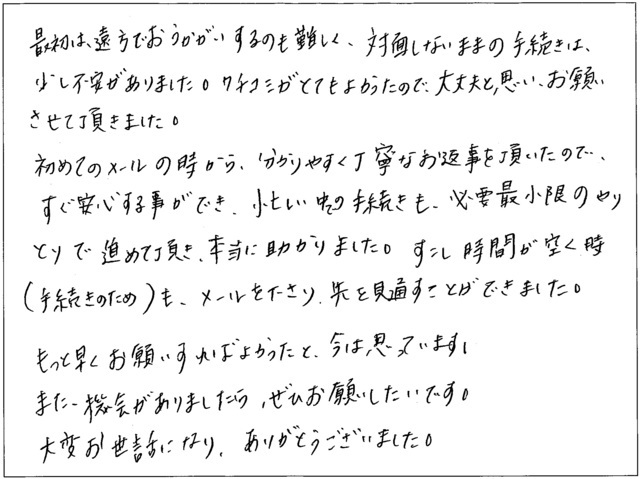 最初は、遠方でおうかがいするのも難しく、対面しないままの手続きは、
少し不安がありました。クチコミがとてもよかったので、大丈夫と思い、お願い
させて頂きました。
初めてのメールの時から、分かりやすく丁寧なお返事を頂いたので、
すぐ安心する事ができ、忙しい中の手続きも、必要最小限のやり
とりで進めて頂き、本当に助かりました。すこし時間が空く時
(手続きのため)も、メールを下さり、先を見通すことができました。
もっと早くお願いすればよかったと、今は思っています。
また機会がありましたら、ぜひお願いしたいです。
大変お世話になり、ありがとうございました。